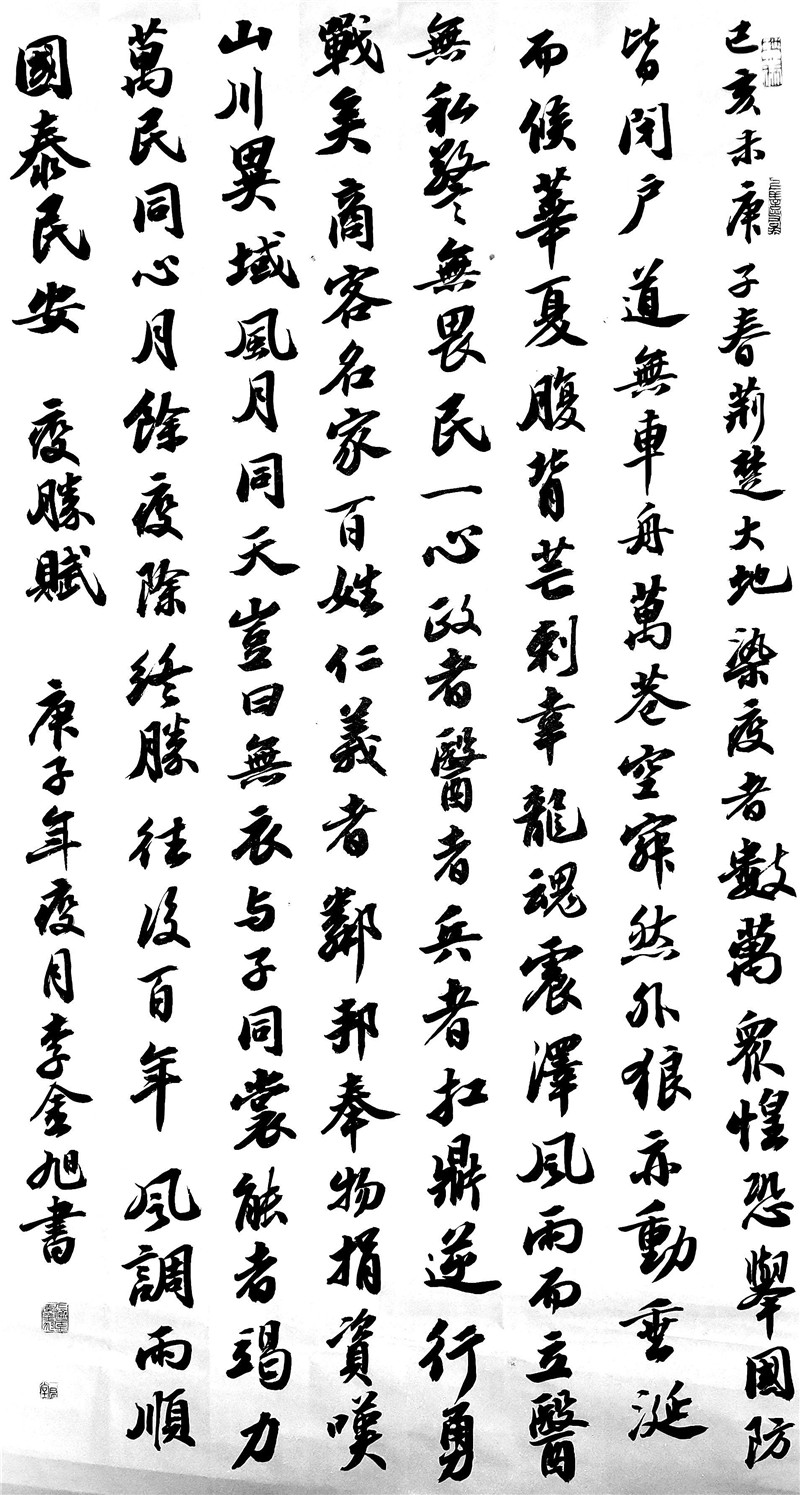 己亥末庚子春荊楚大地染疫者數萬眾惶恐舉國防
皆閉戶道無車舟萬巷空寂然外狼亦動垂涎
而候華夏腹背芒刺幸龍魂震澤風雨而立醫
無私警無畏民一心政者醫者兵者扛鼎逆行勇
戰矣商客名家百姓仁義者鄰邦奉物捐資嘆
山川異域風月同天豈曰無衣与子同裳能者竭力
萬民同心月餘疫除終勝往後百年風調雨順
國泰民安 疫勝賦 庚子年疫月李金旭書